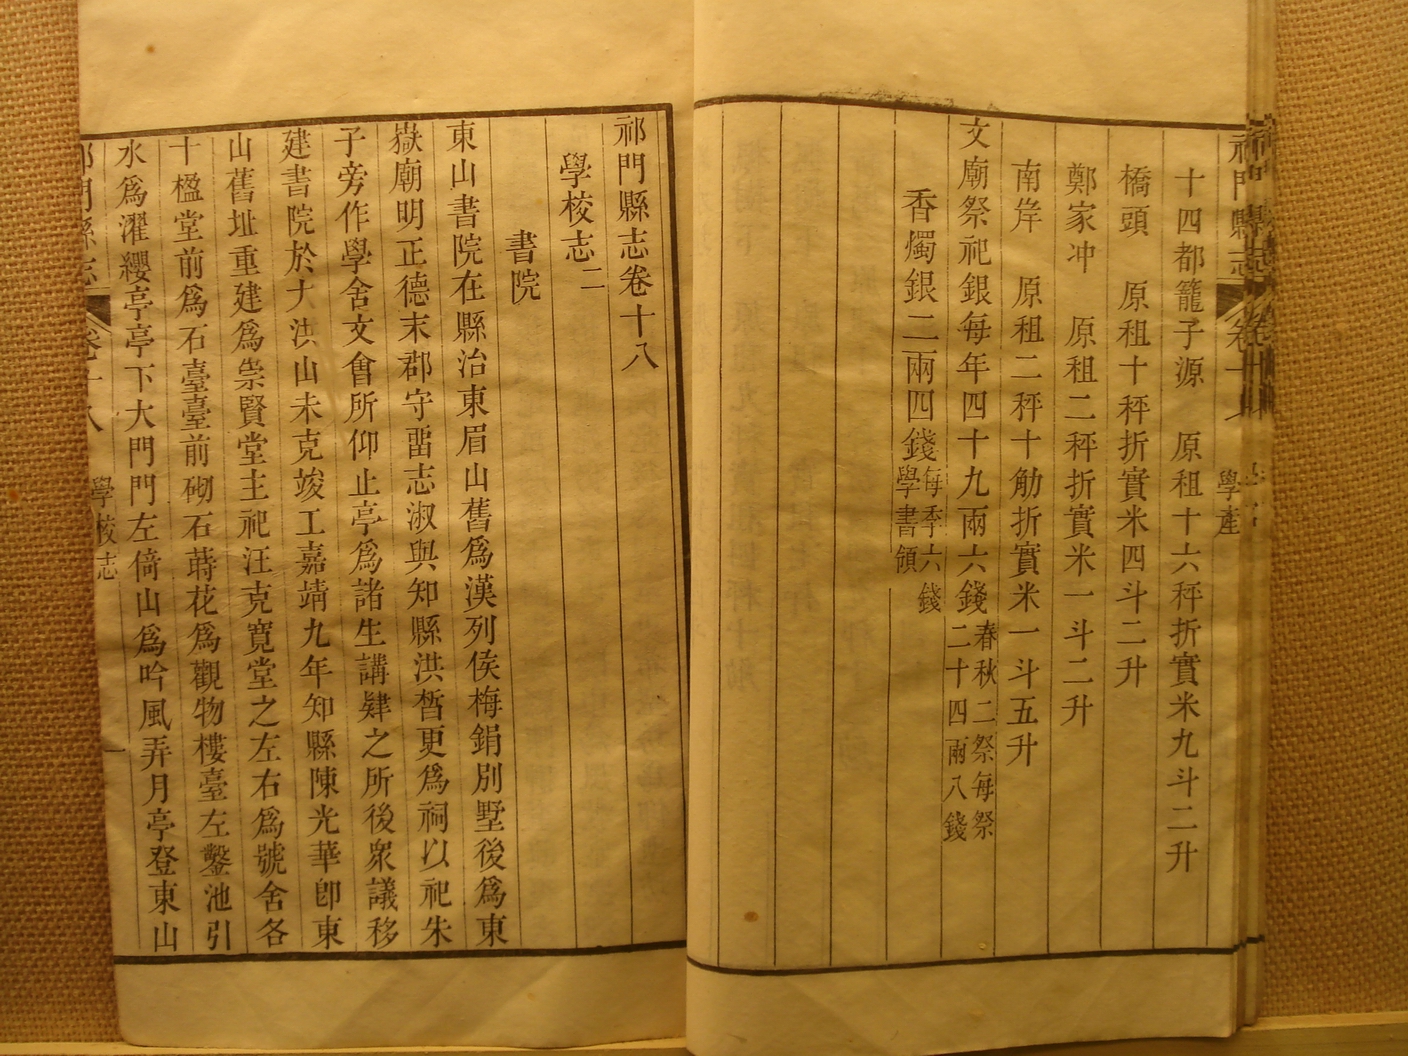 祁門縣志
卷十
學產
十四都籠子源　原租十六秤折實米九斗二升
橋頭　原租十秤折實米四斗二升
鄭家冲　原租二秤折實米一斗二升
南岸　原租二秤十觔折實米一斗五升
文廟祭祀銀每年四十九兩六錢春秋二祭每祭
二十四兩八錢
香燭銀二兩四錢每季六錢
學書領
祁門縣志卷十八
學校志二
書院
東山書院在縣治東眉山舊為漢列侯梅鋗別墅後為東
嶽廟明正德末郡守畱志淑與知縣洪晳更為祠以祀朱
子旁作學舍文會所仰止亭為諸生講肄之所後衆議移
建書院於大洪山未克竣工嘉靖九年知縣陳光華卽東
山舊址重建為崇賢堂主祀汪克寬堂之左右為號舍各
十楹堂前為石臺臺前砌石蒔花為觀物樓臺左鑿池引
水為濯纓亭亭下大門門左倚山為吟風弄月亭登東山
祁門縣志
卷十八
學校志
一